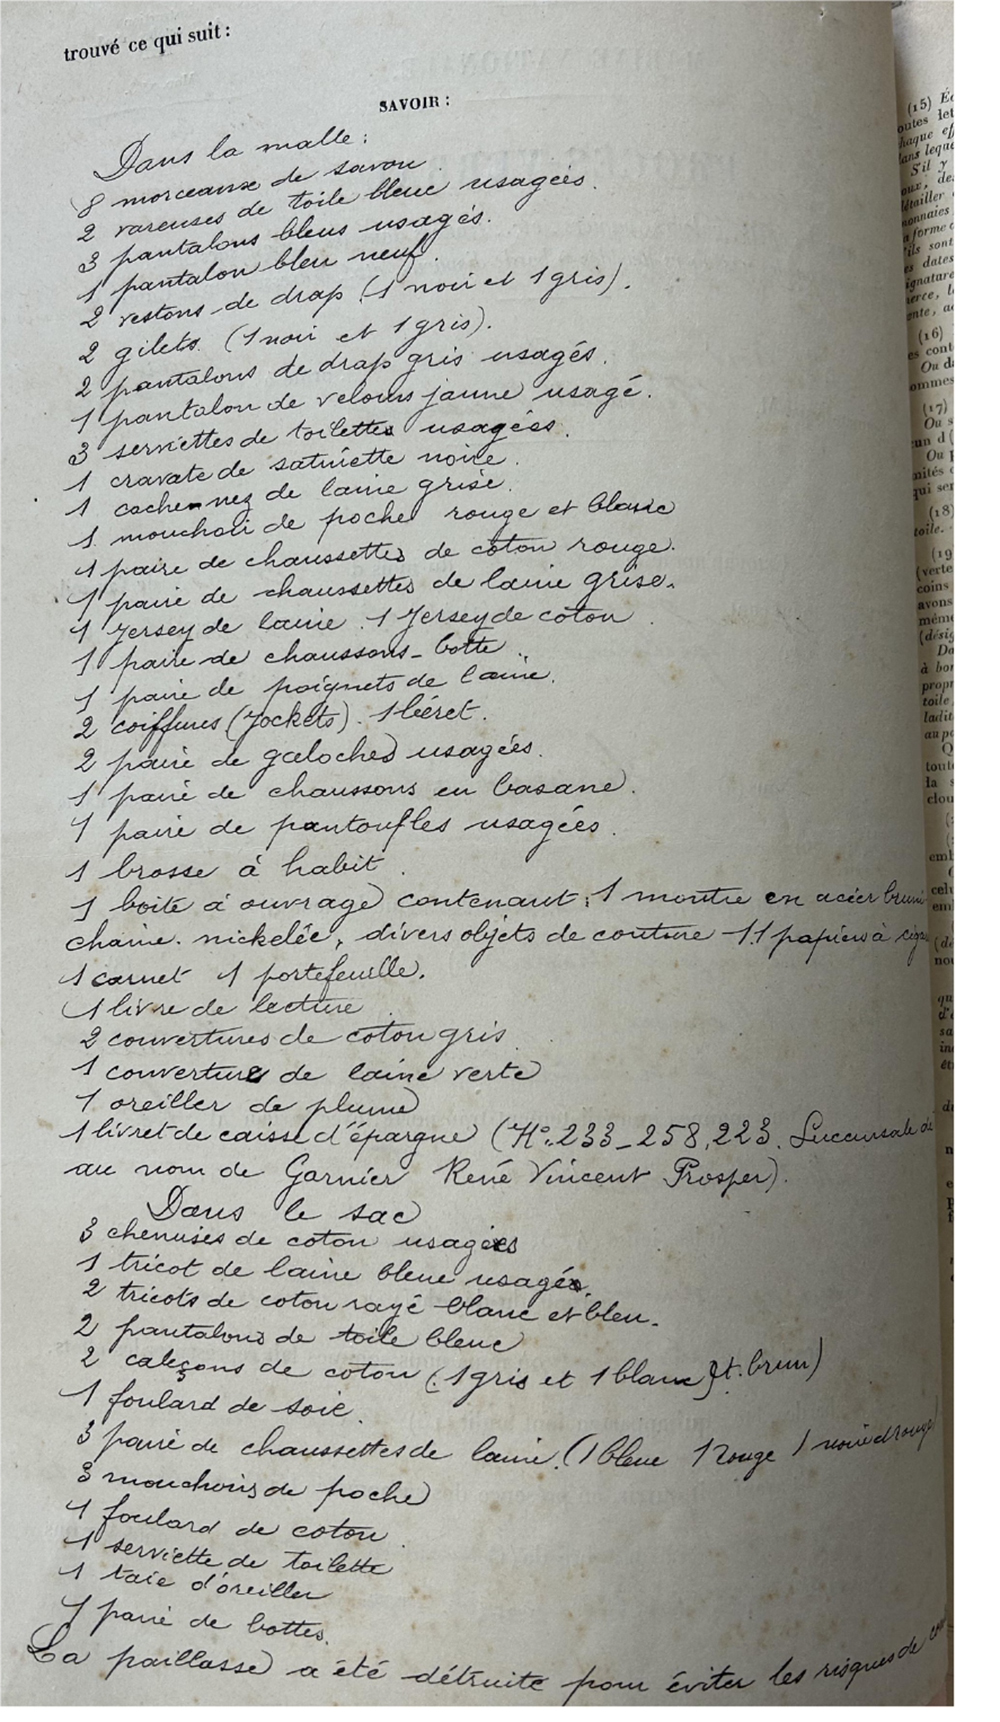 trouvé ce qui suit :
SAVOIR :
Dans la malle :
8 morceaux de savon
2 vareuses de toile bleue usagées.
3 pantalons bleus usagés.
1 pantalon bleu neuf.
2 vestons de drap (1 noir et 1 gris).
2 gilets (1 noir et 1 gris).
2 pantalons de drap gris usagés.
1 pantalon de velours jaune usagé.
3 serviettes de toilettes usagées.
1 cravate de satinette noire.
1 cache-nez de laine grise.
1 mouchoir de poche rouge et blanc
1 paire de chaussettes de coton rouge.
1 paire de chaussettes de laine grise.
1 Jersey de laine. 1 Jersey de coton.
1 paire de chaussons-botte.
1 paire de poignets de laine.
2 coiffures (Jockets). 1 béret.
2 paire de galoches usagées.
1 paire de chaussons en basane.
1 paire de pantoufles usagées.
1 brosse à habit.
1 boite à ouvrage contenant : 1 montre en acier bruni
chaine nickelée, divers objets de couture 11 papiers à
1 carnet 1 portefeuille.
1 livre de lecture
2 couvertures de coton gris.
1 couverture de laine verte
1 oreiller de plume
1 livret de caisse d'épargne (No. 233_258,223. Succursale de
au nom de Garnier René Vincent Prosper).
Dans le sac
3 chemises de coton usagées
1 tricot de laine bleue usagé.
2 tricots de coton rayé blanc et bleu.
2 pantalons de toile bleue
2 caleçons de coton (1 gris et 1 blanc et brun)
1 foulard de soie.
3 paire de chaussettes de laine. (1 bleue 1 rouge 1 noire et rouge
3 mouchoirs de poche
1 foulard de coton.
1 serviette de toilette
1 taie d'oreiller
1 paire de bottes.
La paillasse a été détruite pour éviter les risques de
(15)
(16)
(17)
(18)
toile.
(19
(verte
coins
avons
même
(désig
à bor
propr
toile,
ladit
au po
toute
la s
clou